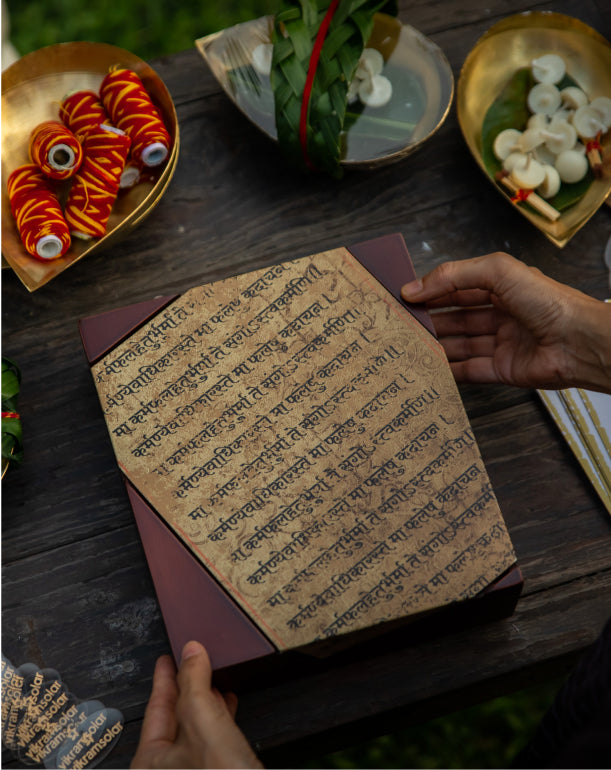 कदाचन
र्मफलहेतुर्भूर्मा ते संगोऽस्त्वकर्मणि॥
कर्मण्येवाधिकारस्ते मा फलेषु कदाचन ।
मा कर्मफलहेतुर्भूर्मा ते संगोऽस्त्वकर्मणि॥
कर्मण्येवाधिकारस्ते मा फलेषु कदाचन ।
मा कर्मफलहेतुर्भूर्मा ते संगोऽस्त्वकर्मणि॥
कर्मण्येवाधिकारस्ते मा फलेषु कदाचन ।
मा कर्मफलहेतुर्भूर्मा ते संगोऽस्त्वकर्मणि॥
कर्मण्येवाधिकारस्ते मा फलेषु कदाचन
मा कर्मफलहेतुर्भूर्मा ते संगोऽस्त्वकर्मणि
कर्मण्येवाधिकारस्ते मा फलेषु
कर्मफलहेतुर्भूर्मा ते
vikramsolar
vikramsolar
vikramsolar
vikramsolar